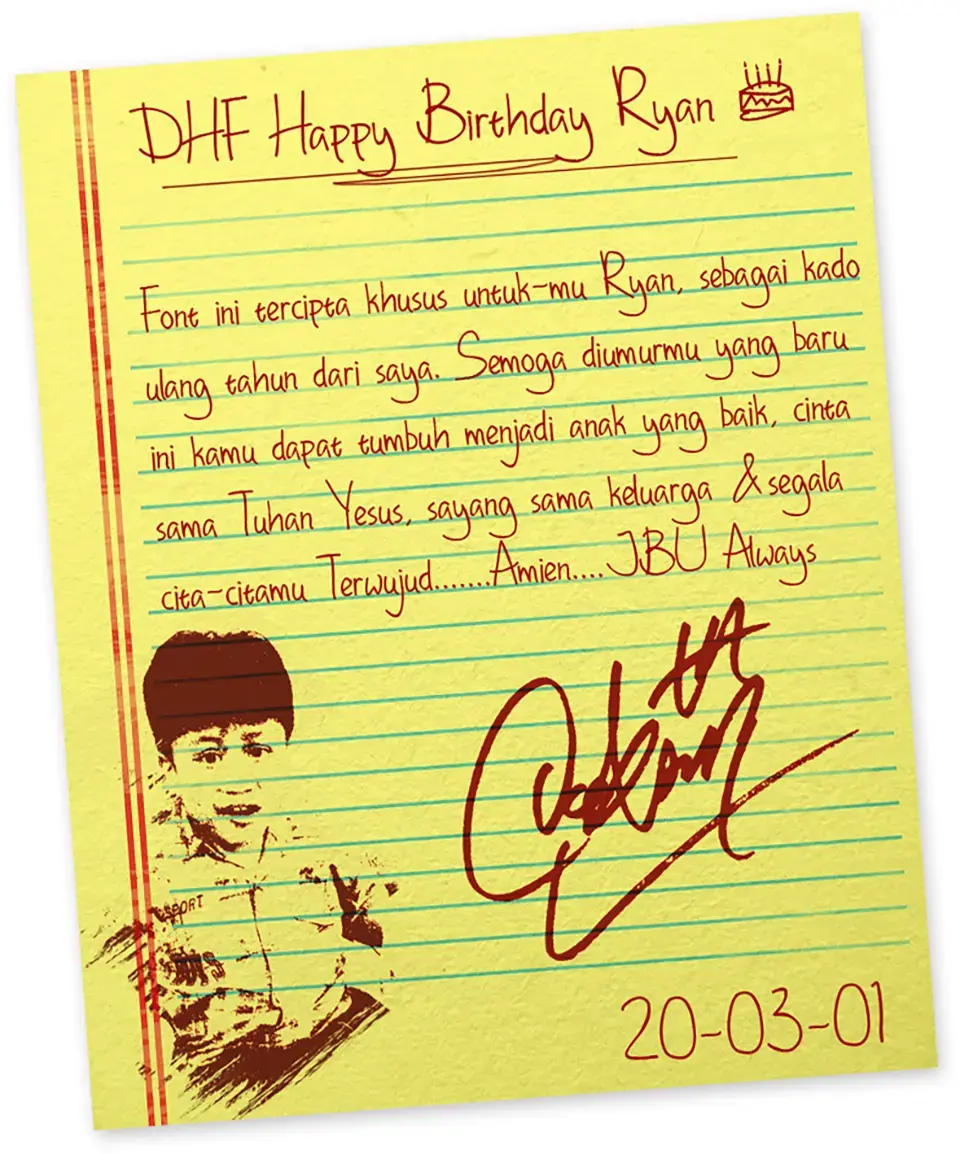 DHF Happy Birthday Ryan
Font ini tercipta khusus untuk-mu Ryan, sebagai kado
ulang tahun dari saya. Semoga diumurmu yang baru
ini kamu dapat tumbuh menjadi anak yang baik, cinta
sama Tuhan Yesus, sayang sama keluarga & segala
cita-citamu Terwujud.......Amien....JBU Always
SPORT
20-03-01